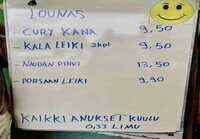 LOUNAS
CURY KANA 9,50
KALA LEIKI 2kpl 9,50
NAUDAN PIHVI 13,50
PORSAAN LEIKI 9,90
KAIKKI ANUKSET KUULU
0,33 LIMU